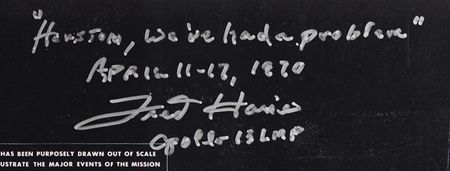 "Houston, we've had a problem"
APRIL 11-17, 1970
Fred Haise
Apollo 13 LMP
HAS BEEN PURPOSELY DRAWN OUT OF SCALE
USTRATE THE MAJOR EVENTS OF THE MISSION